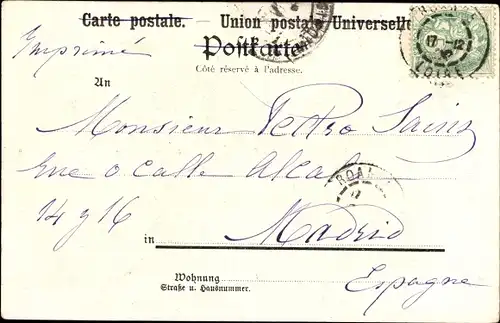 Carte postale. – Union postale Universelle
Imprimé
Postkarte
Côté réservé à l'adresse.
An
Monsieur Pedro Sainz
rue o calle Alcala
ROAN
17
14 y 16
in Madrid
Wohnung
Straße u. Hausnummer.
Espagne
17 12
LOIRE